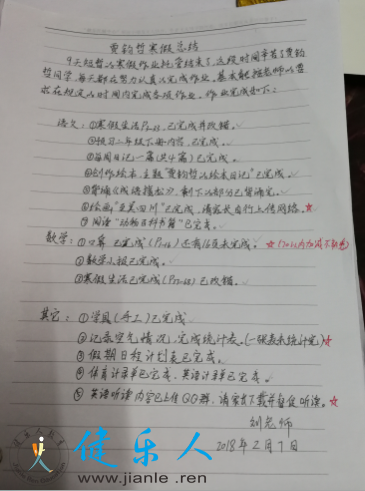 贾钧哲寒假总结
9天短暂的寒假作业托管结束了，这段时间辛苦了贾钧
哲同学，每天都在努力认真的完成作业。基本能按老师的要
求在规定的时间内完成各项作业。作业完成如下：
语文：①寒假生活 已完成并改错。
②预习二年级下册内容，已完成。
③每周日记一篇(共4篇)已完成。
④创作绘本，主题"贾钧哲的绘本日记"已完成。
⑤背诵《成语接龙》，剩下的部分已背诵完。
⑥绘画"美四川"已完成，请家长自行上传网络。
⑦阅读"动物百科书籍"已完成。
数学：①口算 已完成 还有 未完成。
②数学小报已完成。
③寒假生活已完成 已改错。
其它：①学具(手工)已完成
②记录空气情况，完成统计表。(一张表未统计完)
③假期日程计划表已完成。
④体育计录单已完成，英语计录单已完成。
⑤英语听读内容已上传QQ群，请家长下载并督促听读。
刘老师
2018年2月7日
健乐人
www.jianle.ren